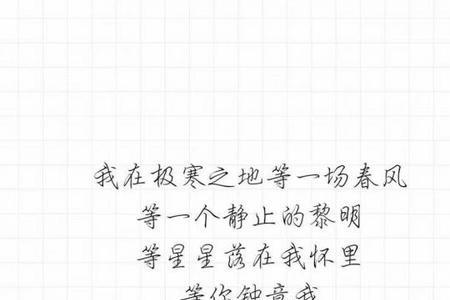 我在极寒之地等一场春风
等一个静止的黎明
等星星落在我怀里
等你钟意我